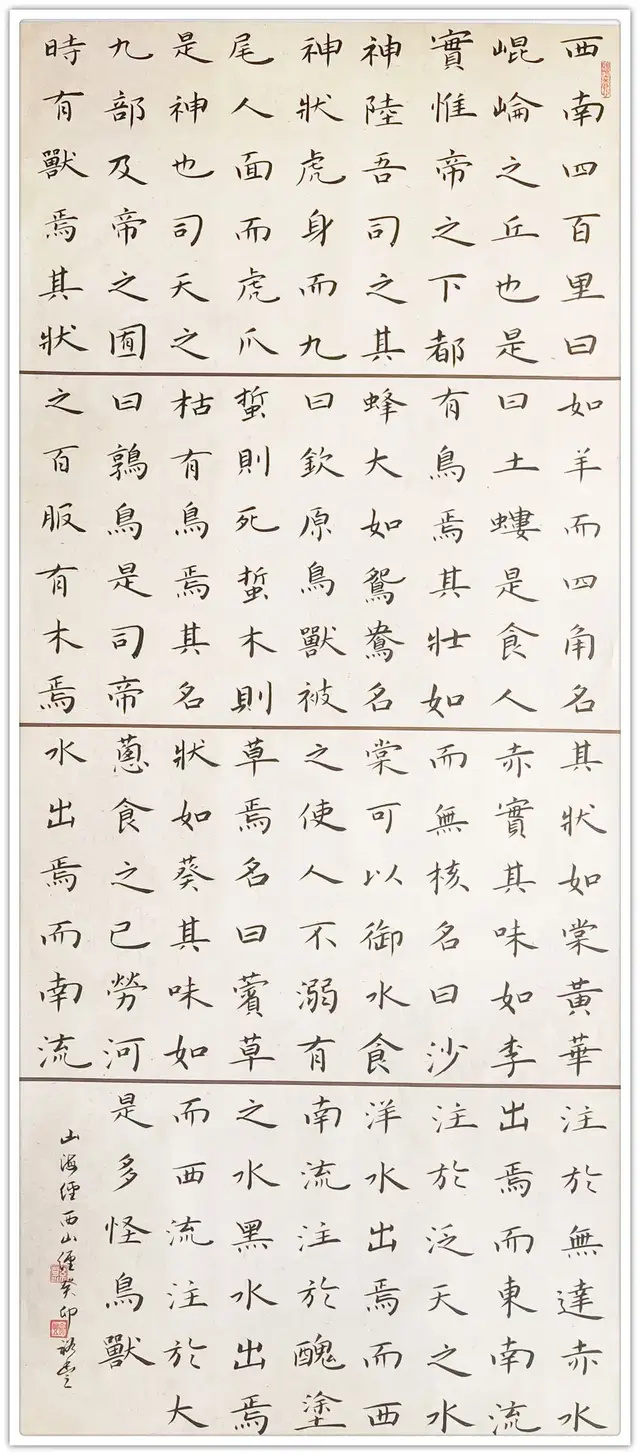 西南四百里曰
崐崘之丘也是
實惟帝之下都
神陸吾司之其
神狀虎身而九
尾人面而虎爪
是神也司天之
九部及帝之囿
時有獸焉其狀
如羊而四角名
曰土螻是食人
有鳥焉其壯如
蜂大如鴛鴦名
曰欽原鳥獸被
蜇則死蜇木則
枯有鳥焉其名
曰鶉鳥是司帝
之百服有木焉
其狀如棠黃華
赤實其味如李
而無核名曰沙
棠可以御水食
之使人不溺有
草焉名曰薲草
狀如葵其味如
蔥食之已勞河
水出焉而南流
注於無達赤水
出焉而東南流
注於泛天之水
洋水出焉而西
南流注於醜塗
之水黑水出焉
而西流注於大
是多怪鳥獸
山海經西山經癸卯